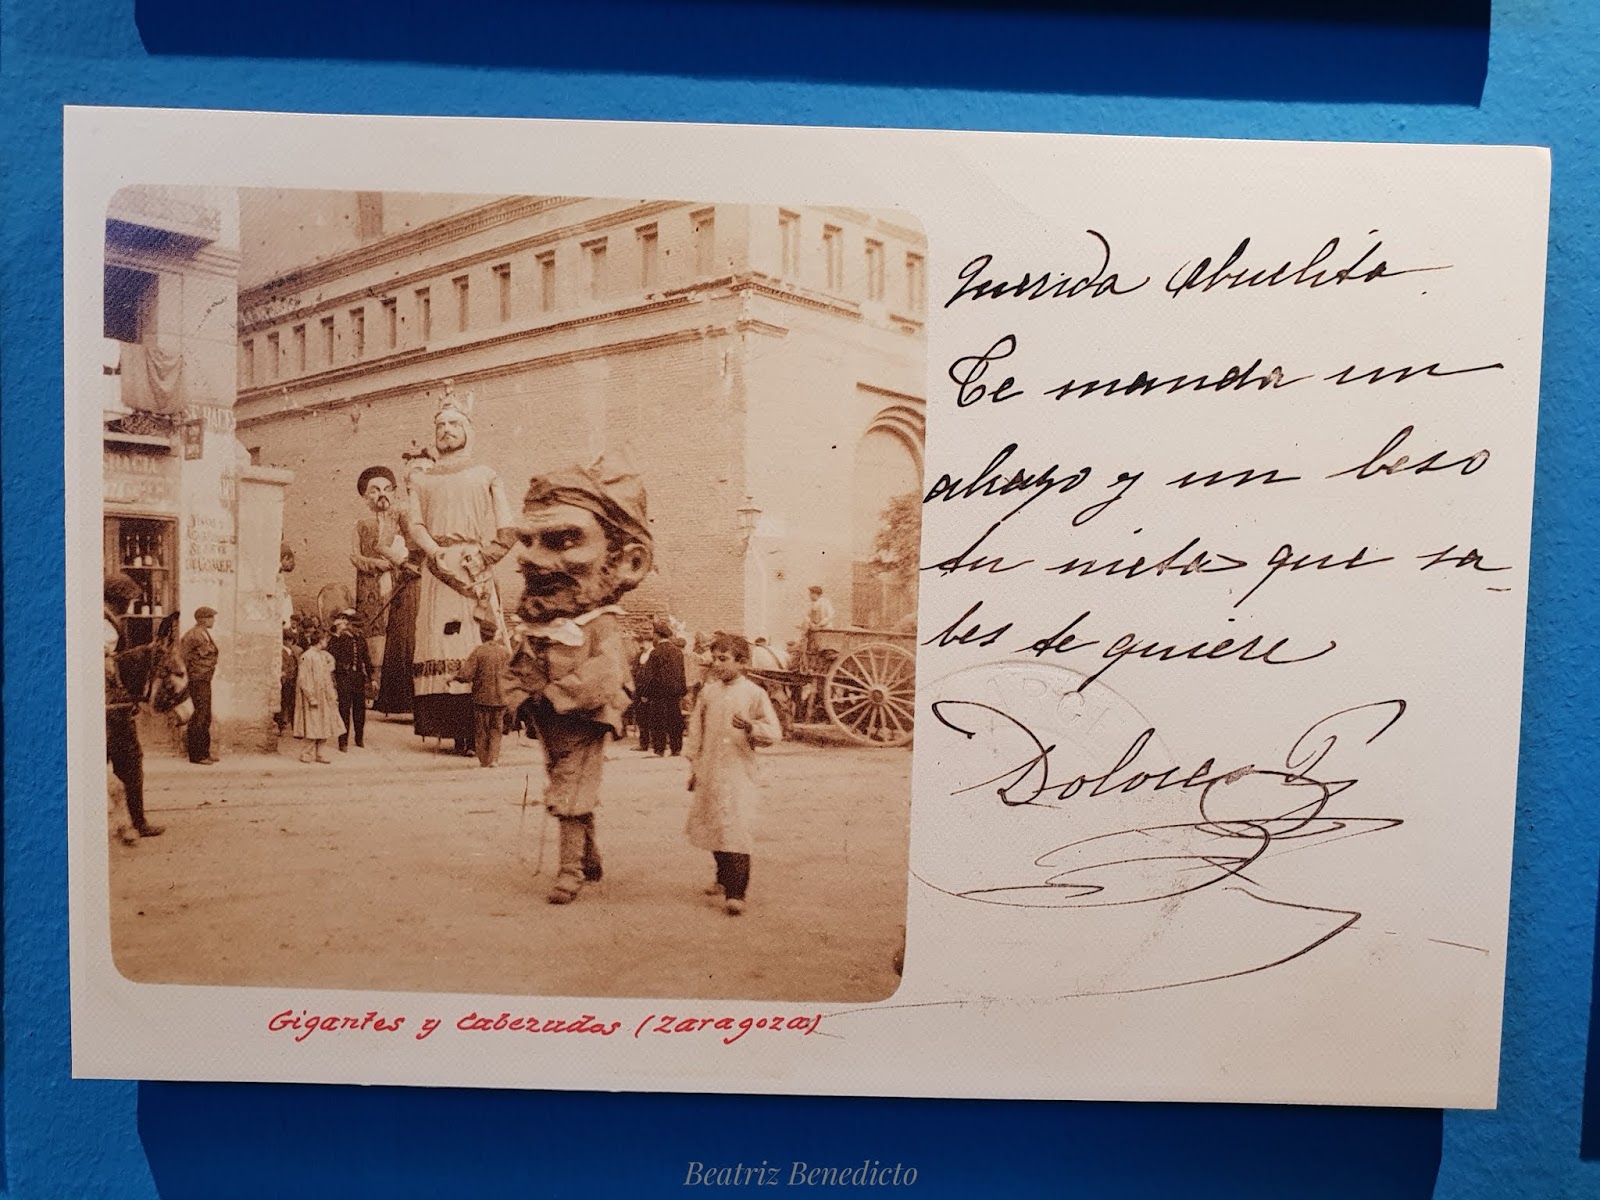 Querida Abuelita
Te manda un
abrazo y un beso
tu nieta que sa-
bes te quiere
Dolores P
Gigantes y Cabezudos (Zaragoza)
Beatriz Benedicto